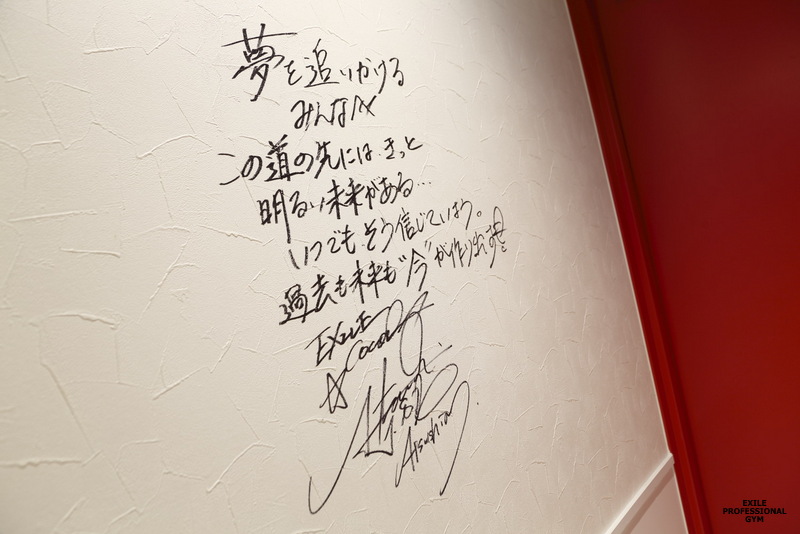 夢を追いかける
みんなへ
この道の先には、きっと
明るい未来がある…
いつでもそう信じていよう。
過去も未来も"今"が作り出す
EXILE
Atsushi
EXILE
PROFESSIONAL
GYM